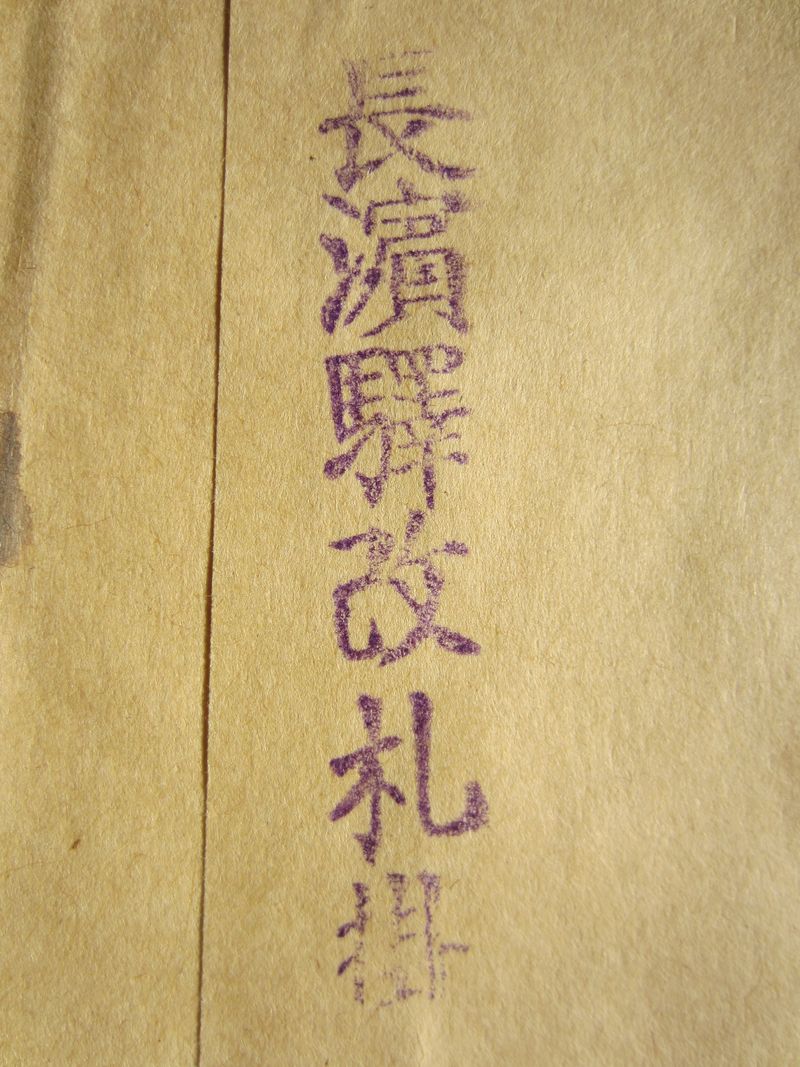 長濱驛改札掛